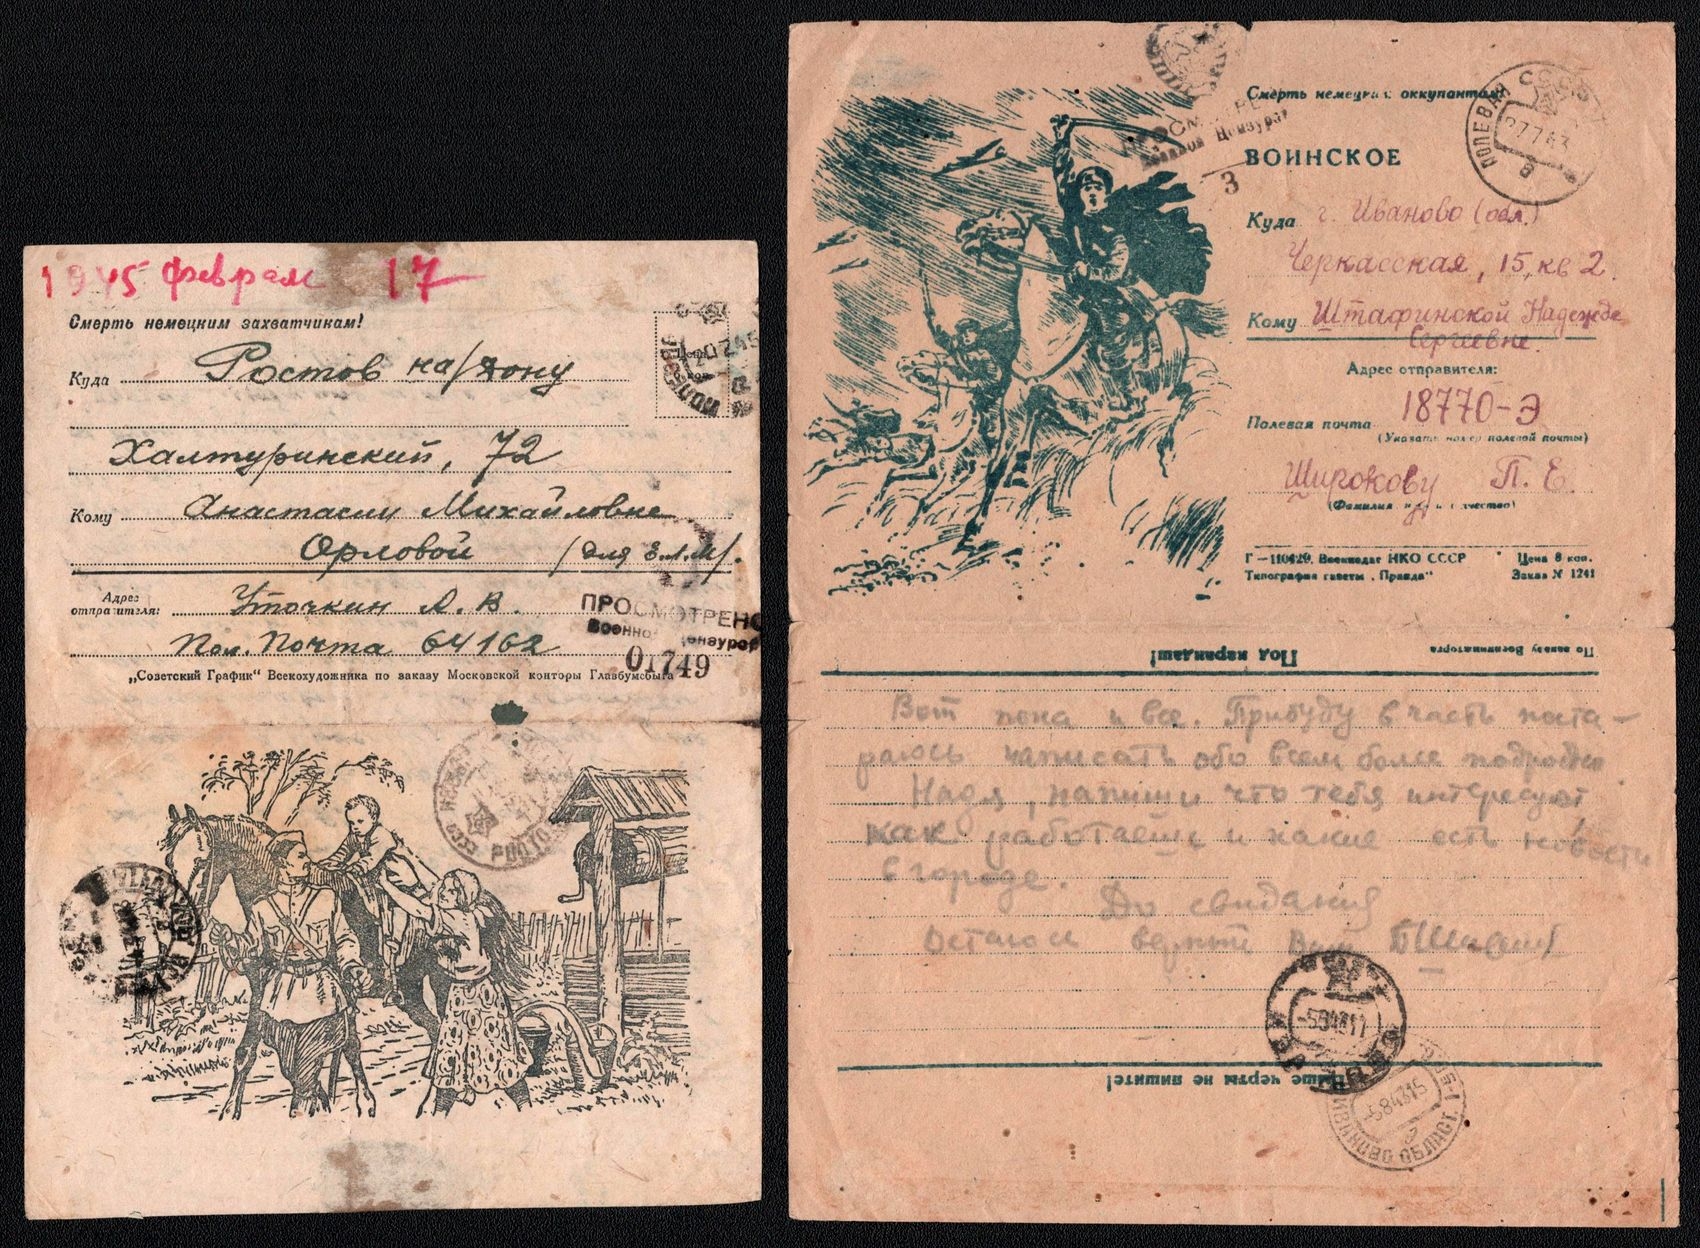 1945 февраля 17
Смерть немецким захватчикам!
Куда Ростов на/Дону
Халтуринский, 72
Кому Анастасии Михайловне
Орловой (для З.Л.М).
Адрес отправителя: Уточкин А. В.
Пол. Почта 64162
ПРОСМОТРЕНО
Военной Цензурой
01749
„Советский График“ Всекохудожника по заказу Московской конторы Главбумсбыта
Смерть немецким оккупантам
ВОИНСКОЕ
ПОЛЕВАЯ СССР
27 7 43
в
3
Куда г. Иваново (обл.)
Черкасская, 15, кв 2.
Кому Штафинской Надежде
Сергеевне.
Адрес отправителя:
18770-Э
Полевая почта
(Указать номер полевой почты)
Широкову П. Е.
(Фамилия, имя и отчество)
Г—110429. Воениздат НКО СССР Цена 8 коп.
Типография газеты „Правда“ Заказ № 1241
По заказу Военвоенторга
Под карандаш!
Вот пока и все. Прибуду в часть поста-
раюсь написать обо всем более подробно
Надя, напиши что тебя интересует
как работаешь и какие есть новости
в городе.
До свидания
Остаюсь
Выше черты не пишите!
-5843 17
-5843 15
ИВАНОВО ОБЛАСТ.